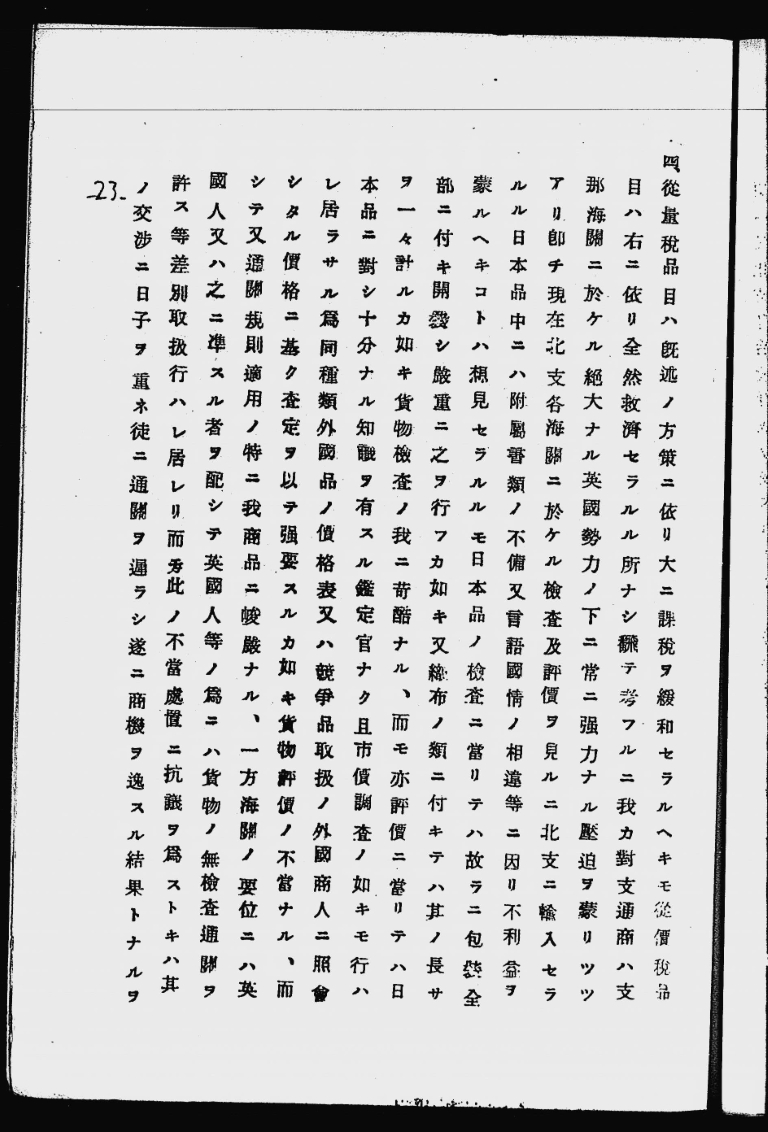 四、從量税品目ハ既述ノ方策ニ依リ大ニ課税ヲ緩和セラルヘキモ從價税品
目ハ右ニ依リ全然救濟セラルル所ナシ飜テ考フルニ我カ對支通商ハ支
那海關ニ於ケル絶大ナル英國勢力ノ下ニ常ニ强力ナル壓迫ヲ蒙リツツ
アリ卽チ現在北支各海關ニ於ケル檢査及評價ヲ見ルニ北支ニ輸入セラ
ルル日本品中ニハ附屬書類ノ不備又言語國情ノ相違等ニ因リ不利益ヲ
蒙ルヘキコトハ想見セラルルモ日本品ノ檢査ニ當リテハ故ラニ包裝全
部ニ付キ開裝シ嚴重ニ之ヲ行フカ如キ又綿布ノ類ニ付キテハ其ノ長サ
ヲ一々計ルカ如キ貨物檢査ノ我ニ苛酷ナル、而モ亦評價ニ當リテハ日
本品ニ對シ十分ナル知識ヲ有スル鑑定官ナク且市價調査ノ如キモ行ハ
レ居ラサル爲同種類外國品ノ價格表又ハ競爭品取扱ノ外國商人ニ照會
シタル價格ニ基ク査定ヲ以テ强要スルカ如キ貨物評價ノ不當ナル、而
シテ又通關規則適用ノ特ニ我商品ニ峻嚴ナル、一方海關ノ要位ニハ英
國人又ハ之ニ準スル者ヲ配シテ英國人等ノ爲ニハ貨物ノ無檢査通關ヲ
許ス等差別取扱行ハレ居レリ而シテ此ノ不當處置ニ抗議ヲ爲ストキハ其
ノ交渉ニ日子ヲ重ネ徒ニ通關ヲ遲ラシ遂ニ商機ヲ逸スル結果トナルヲ
-23-